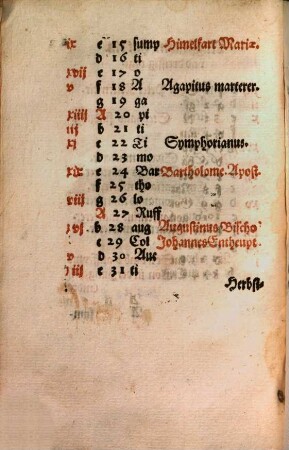 ix c 15 sump Himelfart Mariæ.
d 16 ti
xvij e 17 o
v f 18 A Agapitus marterer.
g 19 ga
xiij A 20 pi
ij b 21 ti
c 22 Ti Symphorianus.
xi d 23 mo
xix e 24 Bar Bartholome. Apost.
f 25 tho
viij g 26 lo
A 27 Ruff
xvi. b 28 aug Augustinus Bischo
v c 29 Col Johannes Entheupt.
d 30 Auc
xiij e 31 ti
Herbst-